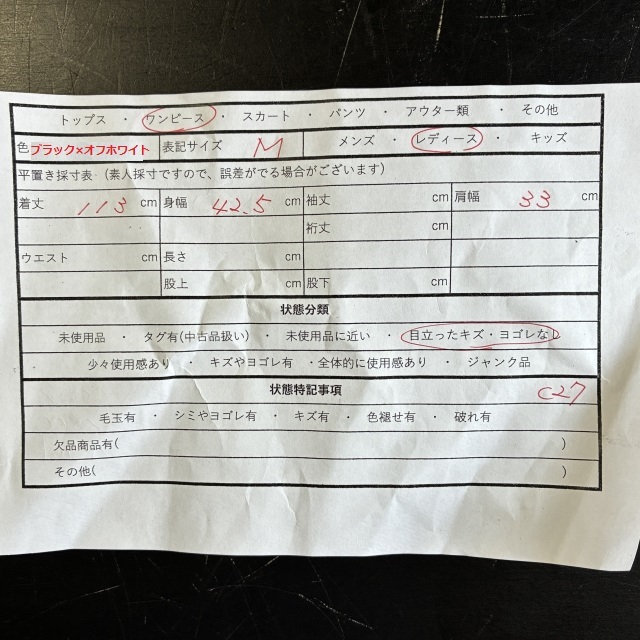 トップス ・ ワンピース ・ スカート ・ パンツ ・ アウター類 ・ その他
色 ブラック×オフホワイト 表記サイズ M メンズ ・ レディース ・ キッズ
平置き採寸表 （素人採寸ですので、誤差がでる場合がございます）
着丈 113 cm 身幅 42.5 cm 袖丈 cm 肩幅 33 cm
裄丈 cm
ウエスト cm 長さ cm
股上 cm 股下 cm
状態分類
未使用品 ・ タグ有(中古品扱い) ・ 未使用品に近い ・ 目立ったキズ・ヨゴレなし
少々使用感あり ・ キズやヨゴレ有 ・全体的に使用感あり ・ ジャンク品
状態特記事項 C27
毛玉有 ・ シミやヨゴレ有 ・ キズ有 ・ 色褪せ有 ・ 破れ有
欠品商品有( )
その他( )